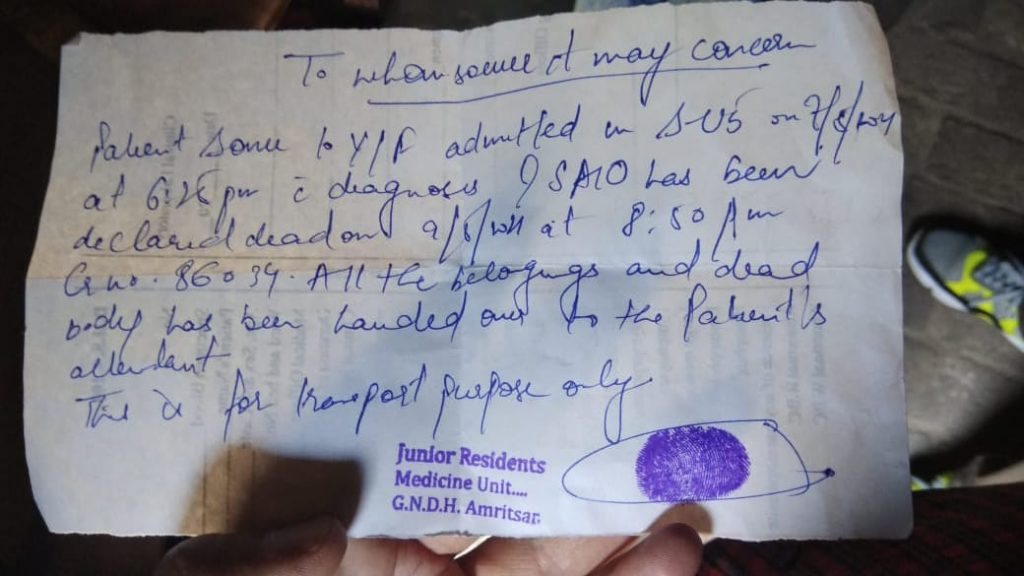 To whomsoever it may concern
Patient Sonu 40 Y/F admitted in S-U5 on 7/8/2021
at 6:25 pm c̄ diagnosis ? SAIO has been
declared dead on 9/8/2021 at 8:50 Am
Cr no. 86034. All the belogings and dead
body has been handed over to the Patient's
attendant
This is for transport purpose only
Junior Residents
Medicine Unit....
G.N.D.H. Amritsar.